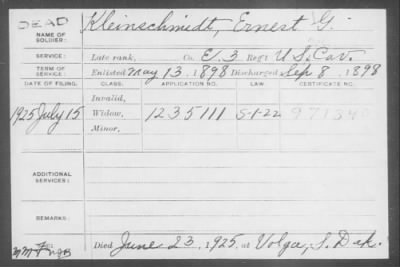 DEAD
NAME OF SOLDIER: Kleinschmidt, Ernest G.
SERVICE: Late rank, Co. E. 3 Reg't U.S. Cav.
TERM OF SERVICE: Enlisted May 13, 1898 Discharged Sep 8, 1898
DATE OF FILING. CLASS. APPLICATION NO. LAW. CERTIFICATE NO.
Invalid,
1925 July 15 Widow, 1235111 5-1-22 971340
Minor,
ADDITIONAL SERVICES:
REMARKS:
Died June 23, 1925 at Volga, S. Dak.